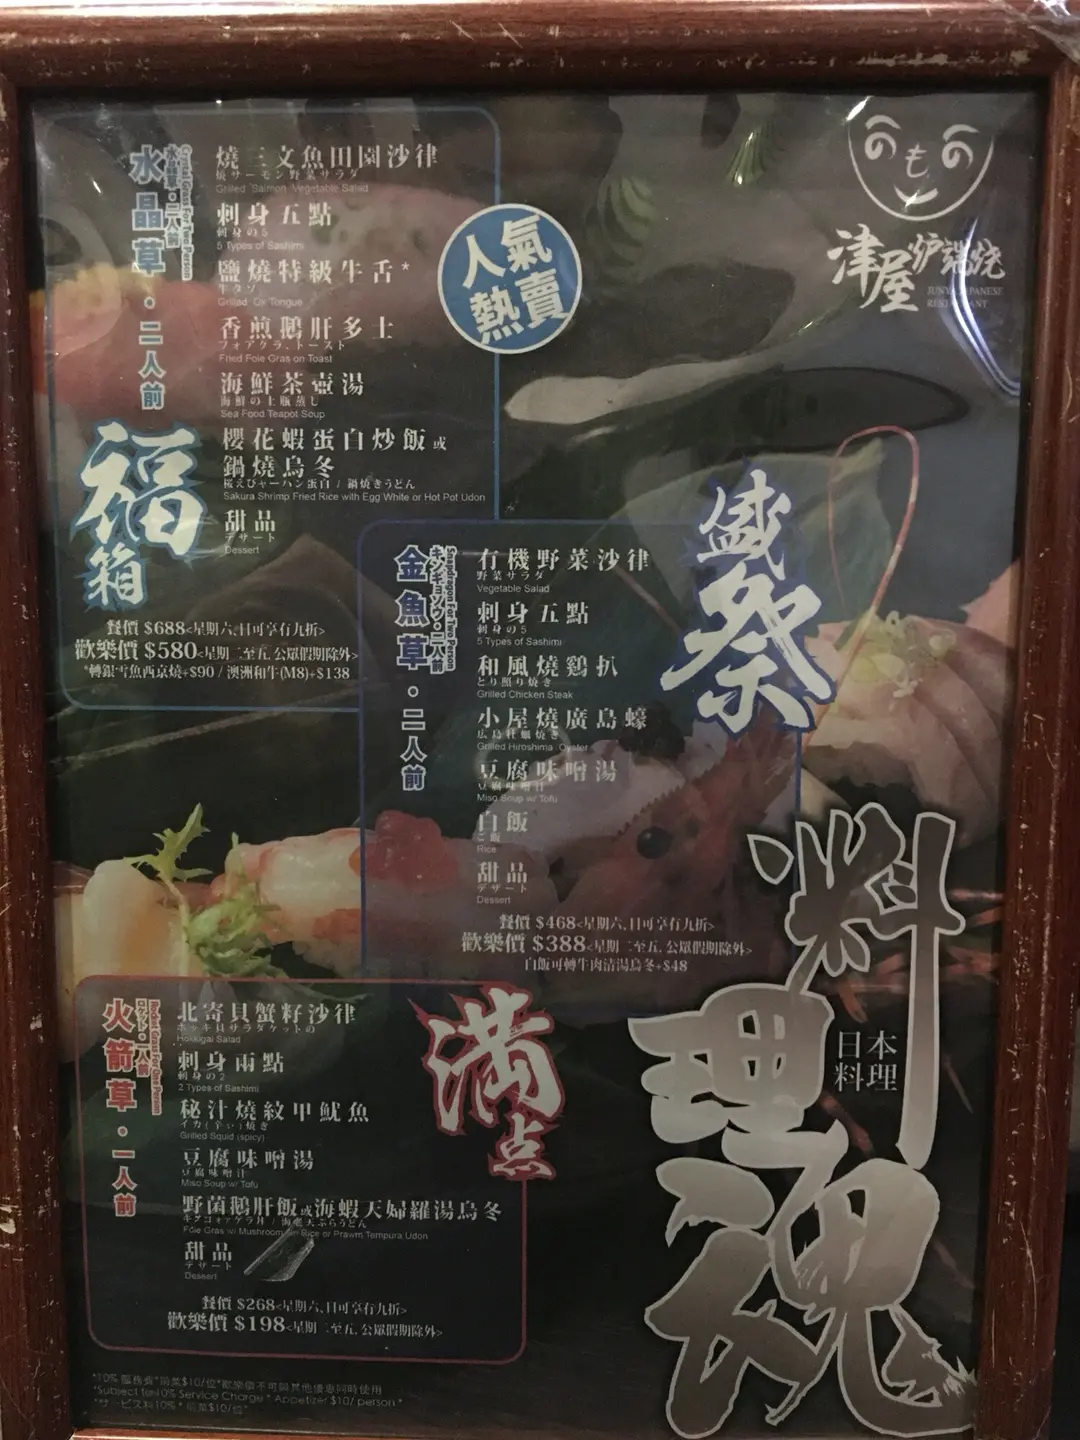 のもの
津屋炉端焼
JUNYA JAPANESE
RESTAURANT
人氣
熱賣
水晶草・二人前
福箱
燒三文魚田園沙律
焼サーモン野菜サラダ
Grilled Salmon Vegetable Salad
刺身五點
刺身の5
5 Types of Sashimi
鹽燒特級牛舌*
牛タン
Grilled Ox Tongue
香煎鵝肝多士
フォアグラ、トースト
Fried Foie Gras on Toast
海鮮茶壺湯
海鮮の土瓶蒸し
Sea Food Teapot Soup
櫻花蝦蛋白炒飯或
鍋燒烏冬
桜えびチャーハン蛋白 / 鍋焼きうどん
Sakura Shrimp Fried Rice with Egg White or Hot Pot Udon
甜品
デザート
Dessert
餐價 $688<星期六、日可享有九折>
歡樂價 $580<星期二至五, 公眾假期除外>
*轉銀雪魚西京燒+$90 / 澳洲和牛(M8)+$138
盛祭
金魚草・二人前
キンギョソウ・二人前
Snapdragon For Two Person
有機野菜沙律
野菜サラダ
Vegetable Salad
刺身五點
刺身の5
5 Types of Sashimi
和風燒鷄扒
とり照り焼き
Grilled Chicken Steak
小屋燒廣島蠔
広島牡蠣焼き
Grilled Hiroshima Oyster
豆腐味噌湯
豆腐味噌汁
Miso Soup w/ Tofu
白飯
ご飯
Rice
甜品
デザート
Dessert
餐價 $468<星期六、日可享有九折>
歡樂價 $388<星期二至五, 公眾假期除外>
白飯可轉牛肉清湯烏冬+$48
満点
火箭草・一人前
ロケット・一人前
北寄貝蟹籽沙律
Hokkigai Salad
刺身兩點
刺身の2
2 Types of Sashimi
秘汁燒紋甲魷魚
イカ(辛い)焼き
Grilled Squid (spicy)
豆腐味噌湯
豆腐味噌汁
Miso Soup w/ Tofu
野菌鵝肝飯或海蝦天婦羅湯烏冬
Foie Gras w/ Mushroom on Rice or Prawn Tempura Udon
甜品
デザート
Dessert
餐價 $268<星期六、日可享有九折>
歡樂價 $198<星期二至五, 公眾假期除外>
料理魂
日本
料理
*10% 服務費*前菜$10/位*歡樂價不可與其他優惠同時使用
*Subject to 10% Service Charge * Appetizer $10/ person *
*サービス料10% * 前菜$10/位*